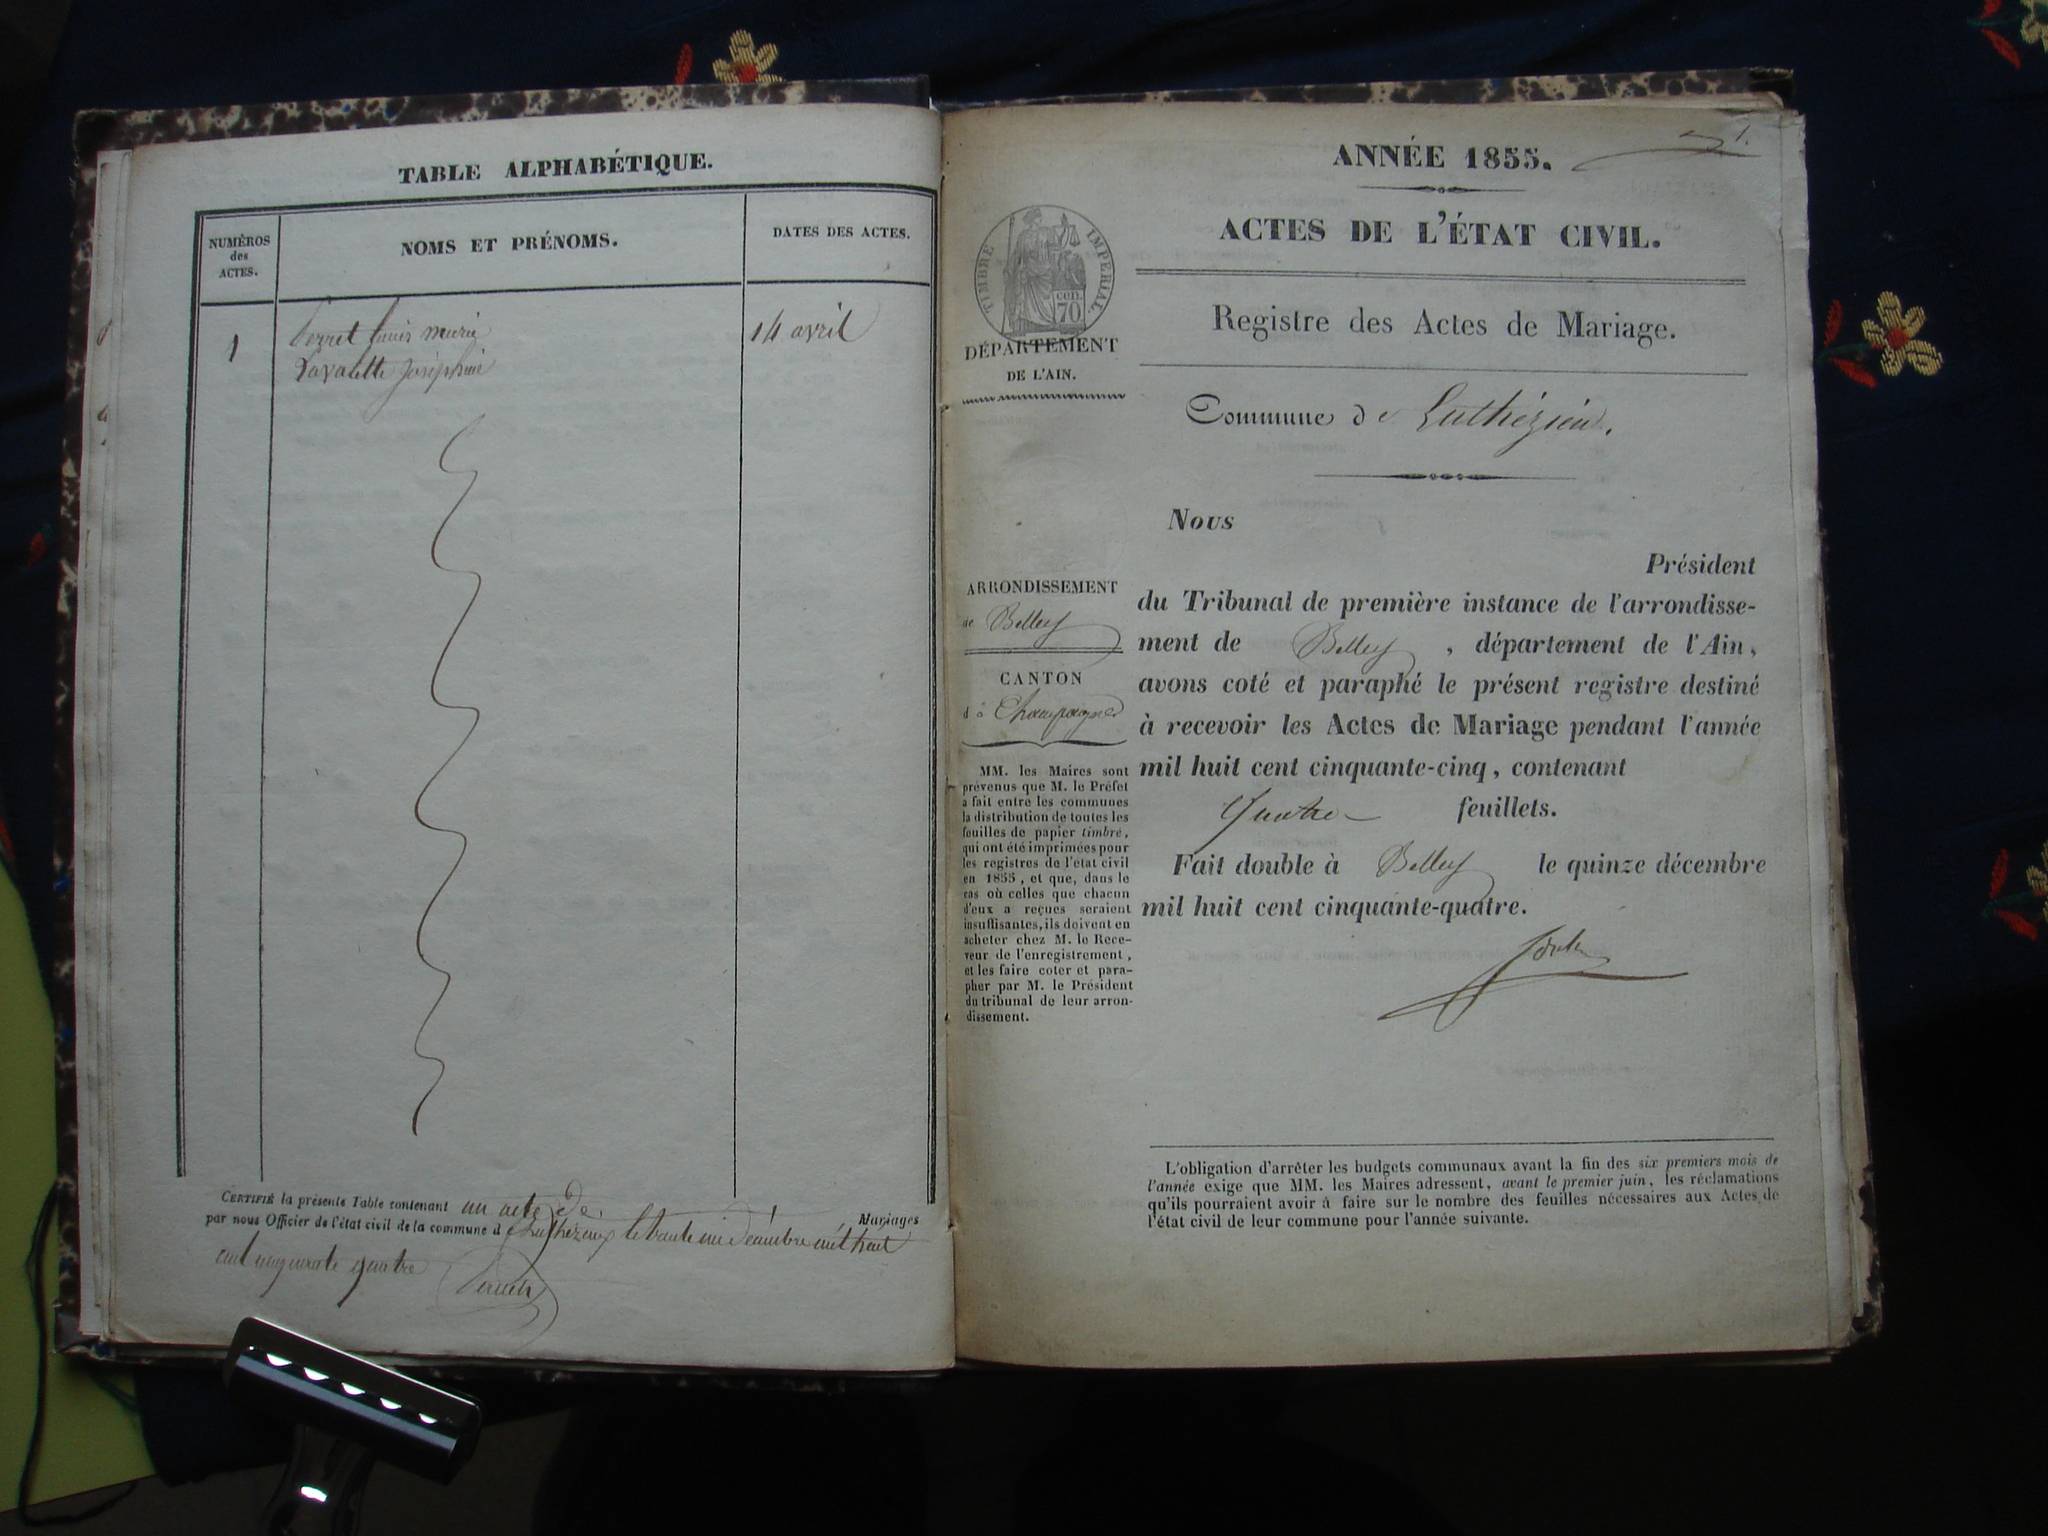 TABLE ALPHABÉTIQUE.
NUMÉROS
des
ACTES.
NOMS ET PRÉNOMS.
DATES DES ACTES.
1
marie
14 avril
Lavalette Joséphine
CERTIFIÉ la présente Table contenant un acte de
Mariages
par nous Officier de l'état civil de la commune d
le trente un décembre mil huit
cent cinquante quatre
1.
ANNÉE 1855.
ACTES DE L'ÉTAT CIVIL.
TIMBRE IMPÉRIAL.
cen.
70
Registre des Actes de Mariage.
DÉPARTEMENT
DE L'AIN.
Commune de Luthézieu.
Nous
Président
du Tribunal de première instance de l'arrondisse-
ment de Belley, département de l'Ain,
avons coté et paraphé le présent registre destiné
à recevoir les Actes de Mariage pendant l'année
mil huit cent cinquante-cinq, contenant
Quatre feuillets.
Fait double à Belley le quinze décembre
mil huit cent cinquante-quatre.
ARRONDISSEMENT
de Belley
CANTON
d Champagne
MM. les Maires sont
prévenus que M. le Préfet
a fait entre les communes
la distribution de toutes les
feuilles de papier timbré,
qui ont été imprimées pour
les registres de l'état civil
en 1855, et que, dans le
cas où celles que chacun
d'eux a reçues seraient
insuffisantes, ils doivent en
acheter chez M. le Rece-
veur de l'enregistrement,
et les faire coter et para-
pher par M. le Président
du tribunal de leur arron-
dissement.
L'obligation d'arrêter les budgets communaux avant la fin des six premiers mois de
l'année exige que MM. les Maires adressent, avant le premier juin, les réclamations
qu'ils pourraient avoir à faire sur le nombre des feuilles nécessaires aux Actes de
l'état civil de leur commune pour l'année suivante.